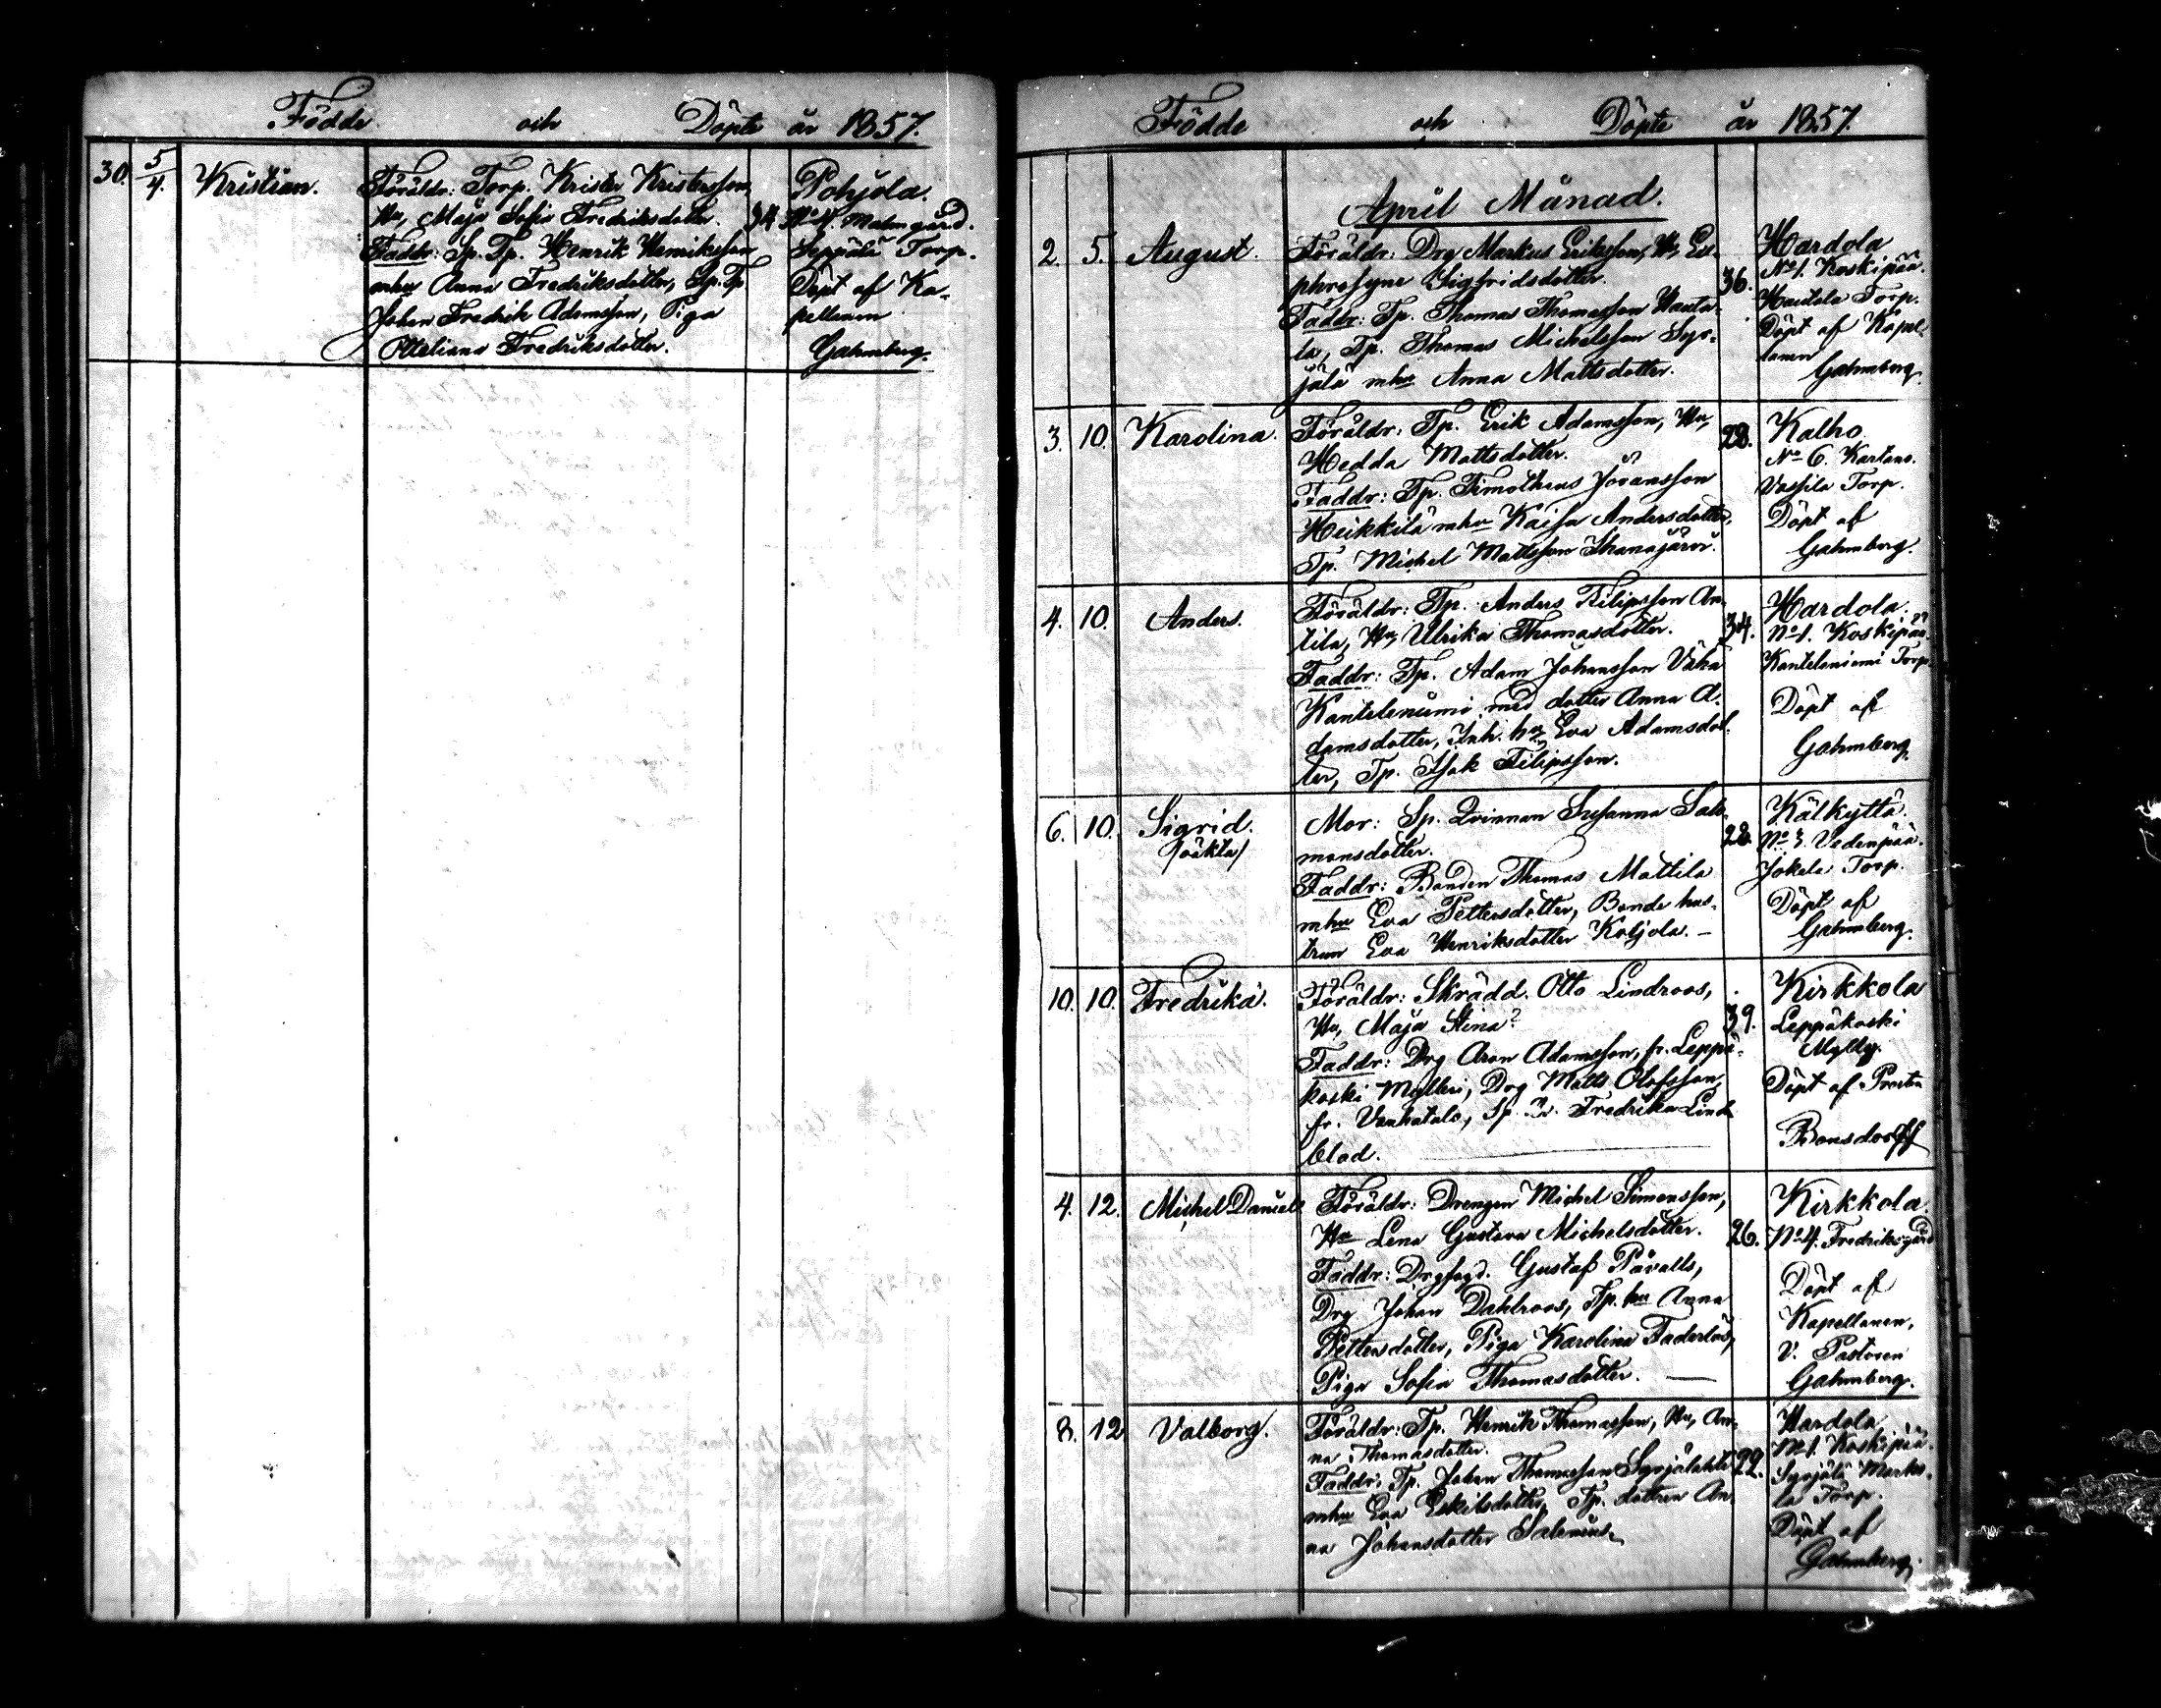 Födde och Döpte år 1857.
30. 5/4. Kristian. Föräldr: Torp. Krister Kristersson,
Hu, Maja Sofia Fredriksdotter.
Faddr: Sp. Tp. Henrik Henriksson
mhu Anna Fredriksdotter, Sp. Tp
Johan Fredrik Adamsson, Piga
Otteliana Fredriksdotter.
34
Pohjola.
No 4. Malmgård.
Seppälä Torp.
Döpt af Ka-
pellanen
Gahmberg.
Födde och Döpte år 1857.
April Månad.
2. 5. August. Föräldr: Drg Markus Eriksson, Hu, Eu-
phrosyne Sigfridsdotter.
Faddr: Tp. Thomas Thomasson Hauta-
la, Tp. Thomas Michelsson Syr-
jälä mhu Anna Mattsdotter.
36.
Hardola
No 1. Koskipää.
Hautala Torp.
Döpt af Kapel-
lanen
Gahmberg.
3. 10. Karolina. Föräldr: Tp. Erik Adamsson, Hu,
Hedda Mattsdotter.
Faddr: Tp. Timotheus Jöransson
Heikkilä mhu Kaisa Andersdotter,
Tp. Michel Mattsson Ihanajärvi.
28.
Kalho.
No 6. Kartano.
Vassila Torp.
Döpt af
Gahmberg.
4. 10. Anders. Föräldr: Tp. Anders Filipsson An-
tila, Hu, Ulrika Thomasdotter.
Faddr: Tp. Adam Johansson Vähä
Kanteleniemi med dotter Anna A-
damsdotter, Inh. hu Eva Adamsdot-
ter, Tp. Isak Filipsson.
34.
Hardola.
No 1. Koskipää.
Kanteleniemi Torp.
Döpt af
Gahmberg.
6. 10. Sigrid.
/oäkta/
Mor: Sp. Qvinnan Susanna Salo-
monsdotter.
Faddr: Bonden Thomas Mattila
mhu Eva Pettersdotter, Bonde hus-
trun Eva Henriksdotter Koljola. -
28
Kälkyttä.
No 3. Vedenpää.
Jokela Torp.
Döpt af
Gahmberg.
10. 10. Fredrika. Föräldr: Skrädd. Otto Lindroos,
Hu, Maja Stina?
Faddr: Drg Aron Adamsson, fr. Leppä-
koski Mylleri, Drg Matts Olofsson,
fr. Vanhatalo, Sp. Fredrika Lind-
blad.
39.
Kirkkola
Leppäkoski
Döpt af Prosten
Bonsdorff
4. 12. Michel Daniel Föräldr: Drengen Michel Simonsson,
Hu Lena Gustava Michelsdotter.
Faddr: Drgfogd. Gustaf Pävalls,
Drg Johan Dahlroos, Tp. hu Anna
Pettersdotter, Piga Karolina Faderlös,
Piga Sofia Thomasdotter.
26.
Kirkkola.
No 4. Fredriksgård
Döpt af
Kapellanen,
V. Pastoren
Gahmberg.
8. 12 Valborg. Föräldr: Tp. Henrik Thomasson, Hu, An-
na Thomasdotter.
Faddr: Tp. Johan Thomasson Syrjälahti
mhu Eva Eskilsdotter, Tp. dottren An-
na Johansdotter Salenius.
22.
Hardola
No 1. Koskipää.
Syrjälä Marko-
la Torp.
Döpt af
Gahmberg.